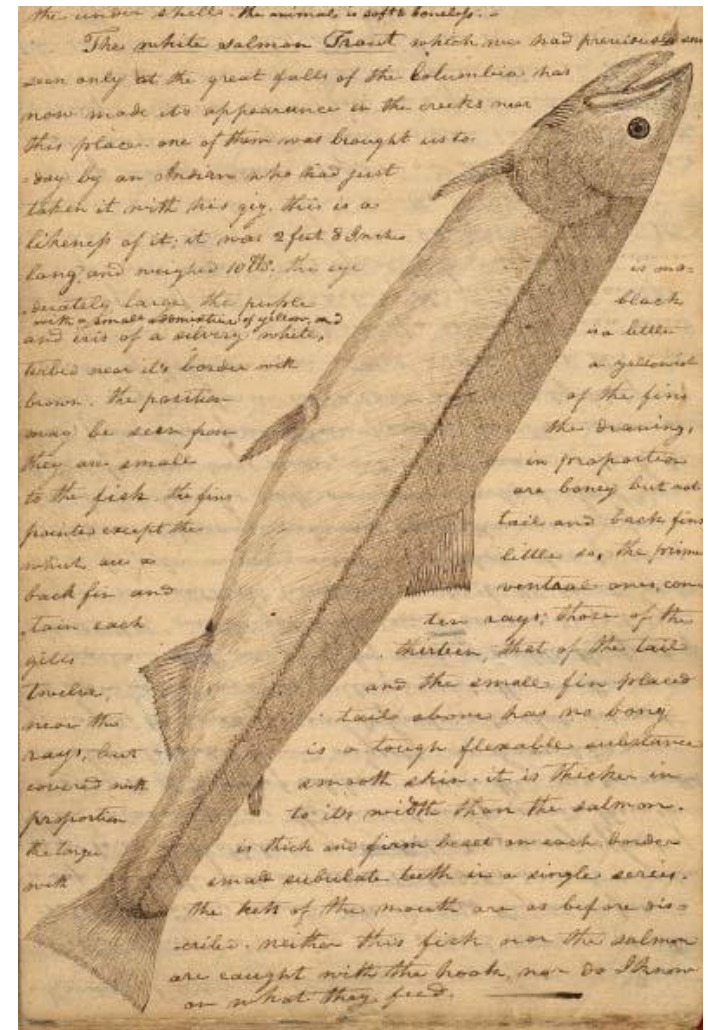 the under shell. the animal is soft & boneless. -
The white salmon Trout which we had previously seen
seen only at the great falls of the Columbia has
now made its appearance in the creeks near
this place. one of them was brought us to
-day by an Indian who had just
taken it with his gig. this is a
likeness of it; it was 2 feet 8 Inches
long, and weighed 10 lbs. the eye is mo-
-derately large, the purple black
with a small admixture of yellow, and
and iris of a silvery white, is a little
terbid near it's border with a yellowish
brown. the position of the fins
may be seen from the drawing,
they are small in proportion
to the fish. the fins are boney but not
pointed except the tail and back fins
which are a little so, the prime
back fin and ventral ones, con-
-tain each ten rays; those of the
gills thirteen, that of the tail
twelve, and the small fin placed
near the tail above has no bony
rays, but is a tough flexable substance
covered with smooth skin. it is thicker in
proportion to it's width than the salmon.
the tongue is thick and firm beset on each border
with small subulate teeth in a single series.
the teeth of the mouth are as before dis-
-cribed. neither this fish nor the salmon
are caught with the hook, nor do I know
on what they feed.